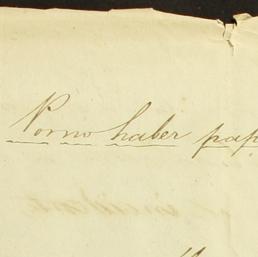 Por no haber pap